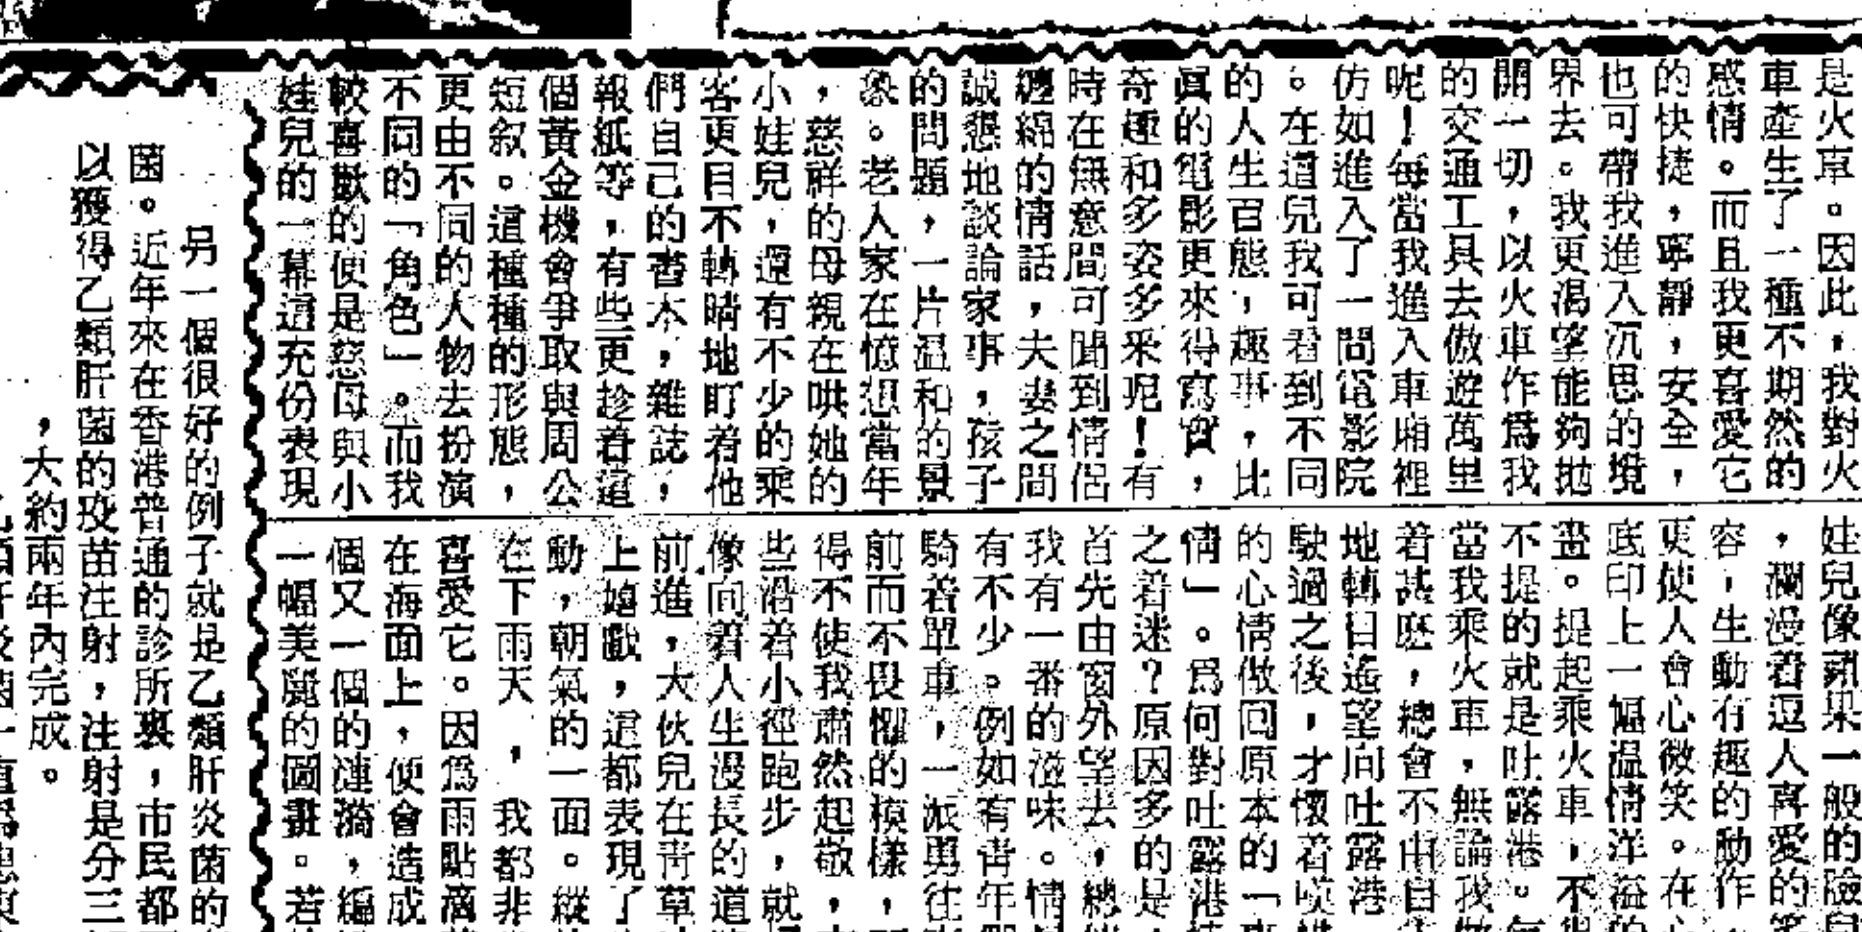 是火車。因此，我對火
車產生了一種不期然的
感情。而且我更喜愛它
的快捷，寧靜，安全，
也可帶我進入沉思的境
界去。我更渴望能夠拋
開一切，以火車作爲我
的交通工具去傲遊萬里
呢！每當我進入車廂裡
仿如進入了一間電影院
。在這兒我可看到不同
的人生百態，趣事，比
眞的電影更來得寫實，
奇趣和多姿多釆呢！有
時在無意間可聞到情侶
纏綿的情話，夫妻之間
誠懇地談論家事，孩子
的問題，一片温和的景
象。老人家在憶想當年
，慈祥的母親在哄她的
小娃兒，還有不少的乘
客更目不轉睛地盯着他
們自己的書本，雜誌，
報紙等，有些更趁着這
個黃金機會爭取與周公
短叙。這種種的形態，
更由不同的人物去扮演
不同的「角色」。而我
較喜歡的便是慈母與小
娃兒的一幕這充份表現
娃兒像蘋果一般的臉
，瀾漫着逗人喜愛的
容，生動有趣的動作
更使人會心微笑。在
底印上一幅温情洋溢的
畫。提起乘火車，不
不提的就是吐露港。每
當我乘火車，無論我
着甚麽，總會不由自
地轉目遙望向吐露港
駛過之後，才懷着
的心情做回原本的「
情」。爲何對吐露港
之着迷？原因多的是
首先由窗外望去，總
我有一番的滋味。情
有不少。例如有靑年
騎着單車，一派勇往
前而不畏懼的模樣，
得不使我肅然起敬，
些沿着小徑跑步，就
像向着人生漫長的道
前進，大伙兒在靑草
上嬉戲，這都表現了
動，朝氣的一面。縱
在下雨天，我都非
喜愛它。因爲雨點滴
在海面上，便會造成
個又一個的漣漪，編
一幅美麗的圖畫。若
另一個很好的例子就是乙類肝炎菌的
菌。近年來在香港普通的診所裏，市民都
以獲得乙類肝菌的疫苗注射，注射是分三
，大約兩年內完成。